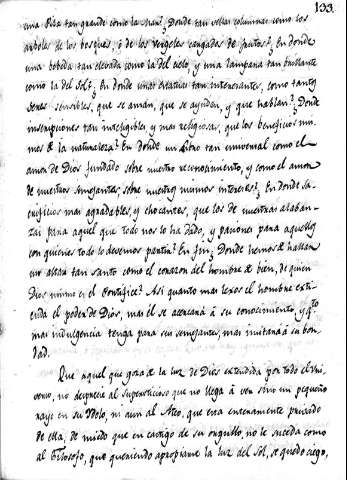 133.
una Pila tan grande como la mar? Donde tan vellas columnas como los
arboles de los bosques, ò de los vergeles cargados de frutos? En donde
una bobeda tan elevada como la del cielo, y una lampara tan brillante
como la del Sol? En donde unas estatuas tan interesantes, como tantos
seres sensibles, que se aman, que se ayudan, y que hablan? Donde
inscripciones tan inteligibles, y mas religiosas, que los beneficios mis-
mos de la naturaleza? En donde un libro tan universal como el
amor de Dios fundado sobre nuestro reconocimiento, y como el amor
de nuestros semejantes, sobre nuestros mismos intereses? En donde sa-
crificios mas agradables, y chocantes, que los de nuestras alaban-
zas para aquel que todo nos lo ha dado, y pasiones para aquellos
con quienes todo lo devemos partir? En fin, Donde hemos de hallar
un altar tan santo como el corazon del hombre de bien, de quien
Dios mismo es el Pontifice? Asi quanto mas lexos el hombre exti-
enda el poder de Dios, mas èl se acercarà à su conocimiento, y q.to
mas indulgencia tenga para sus semejantes, mas imitarà à su bon-
dad.
Que aquel que goza de la luz de Dios extendida por todo el Uni-
verso, no desprecie al Supersticioso que no llega à ver sino un pequeño
rayo en su Ydolo, ni aun al Ateo, que esta enteramente privado
de ella, de miedo que en castigo de su orgullo, no le suceda como
al Filosofo, que queriendo apropiarse la luz del sol, se quedo ciego,